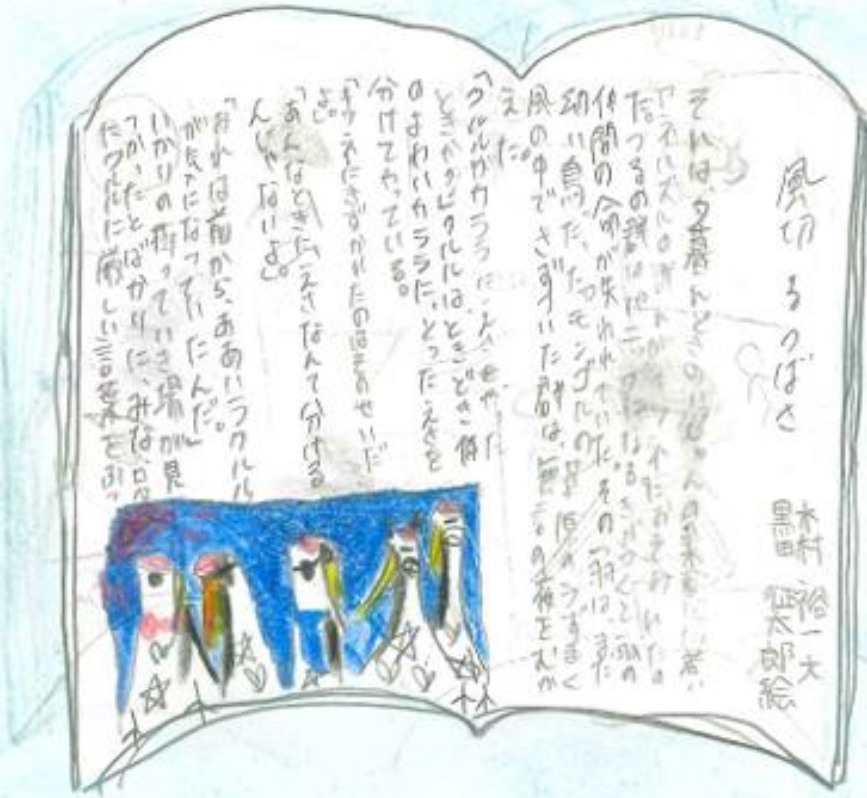 風切るつばさ
木村 裕一 文
黒田 征太郎 絵
それは、夕暮れどきの 若い
アネハズルの
だ。つるの群は になる。きがつくと 一羽の
仲間の命が失われていた。その一羽は、まだ
幼い鳥だった。モンゴルの草原のうずまく
風の中できずついた群は、無言の夜をむか
えた。
「クルルがカララに
ときかクルルは、ときどき体
のよわいカララに、とったえさを
分けてやっている。
「キツネにきずかれたのはそのせいだ
よ。
「あんなときに、えさなんて分ける
んじゃないよ。
「おれは前から、 クルル
が気になっていたんだ。」
いかりの持っていき場が見
つかったとばかりに、みな、口々
たクルルに厳しい言葉をぶつ